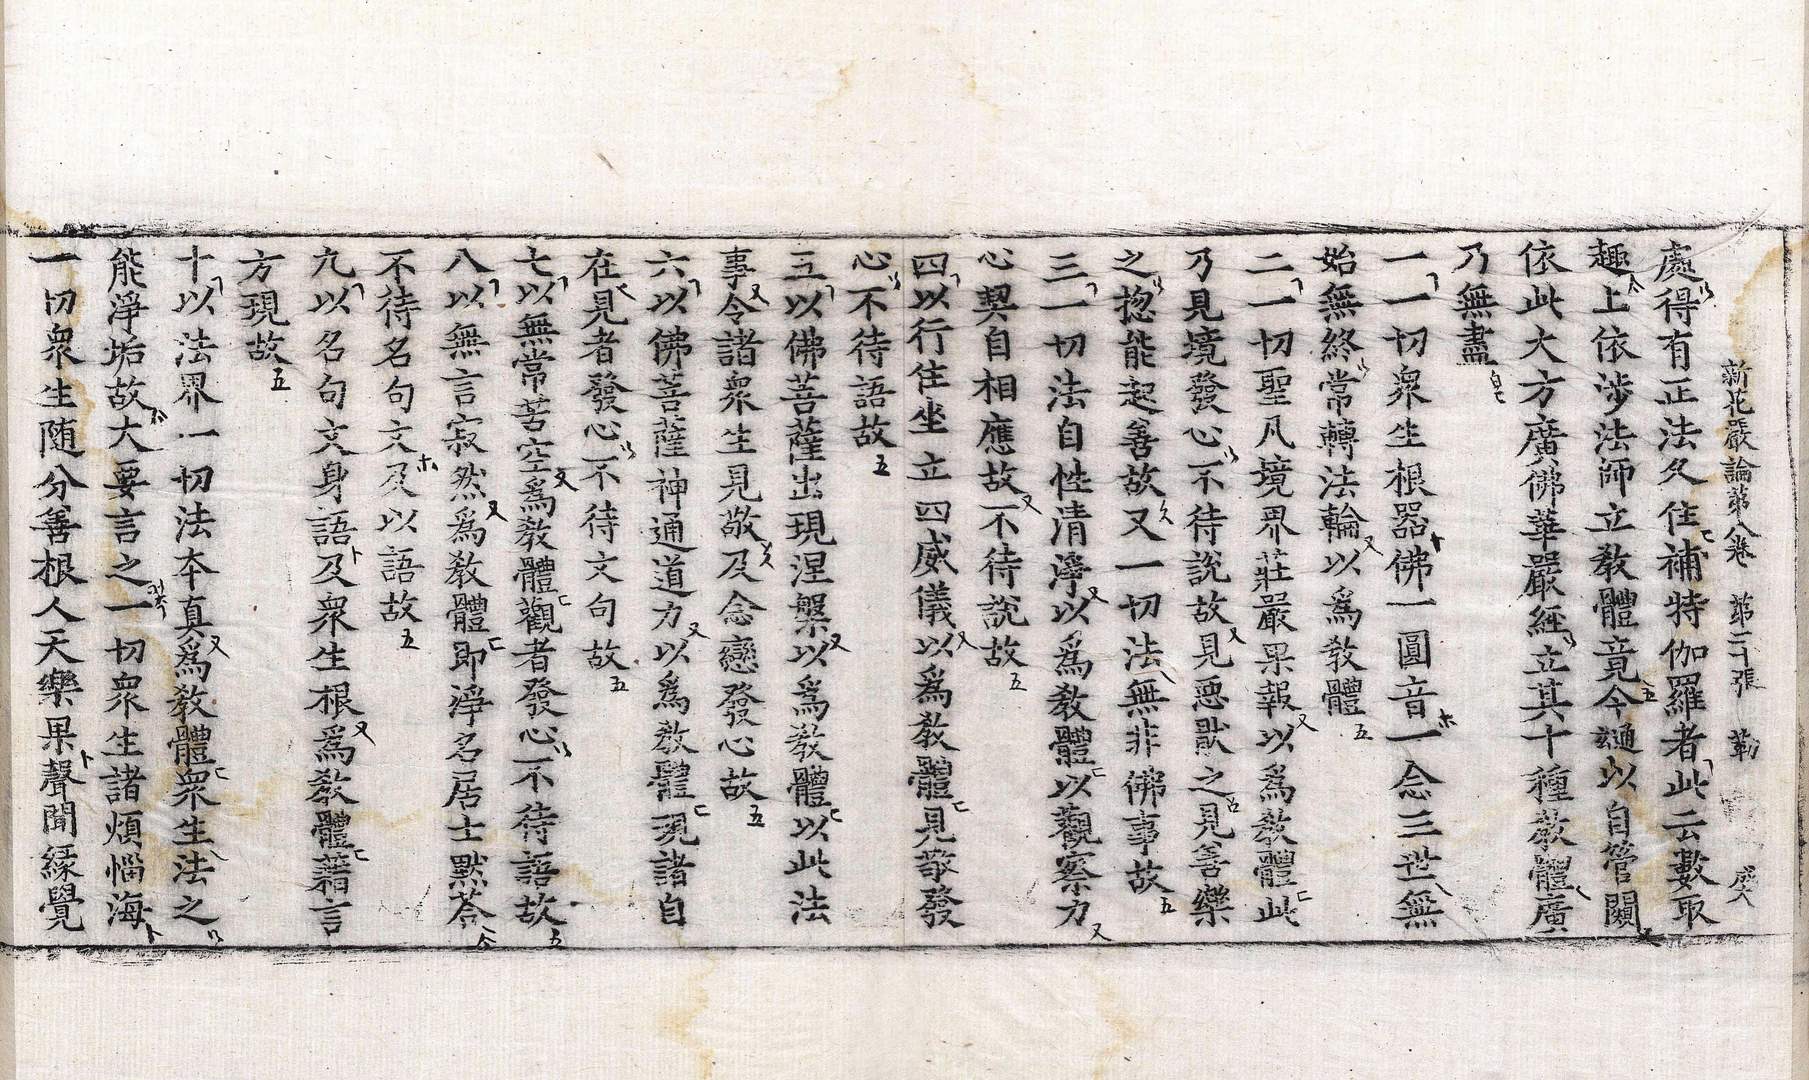 新花嚴論第八卷 第二十張 勒
處得有正法久住補特伽羅者此云數取
趣上依涉法師立教體竟今通以自管闚
依此大方廣佛華嚴經立其十種教體廣
乃無盡
一一切衆生根器佛一圓音一念三世無
始無終常轉法輪以爲教體
二一切聖凡境界莊嚴果報以爲教體此
乃見境發心不待說故見惡猒之見善樂
之揔能起善故又一切法無非佛事故
三一切法自性清淨以爲教體以觀察力
心契自相應故不待說故
四以行住坐立四威儀以爲教體見敬發
心不待語故
五以佛菩薩出現涅槃以爲教體以此法
事令諸衆生見敬及念戀發心故
六以佛菩薩神通道力以爲教體現諸自
在見者發心不待文句故
七以無常苦空爲教體觀者發心不待語故
八以無言寂然爲教體即淨名居士默荅
不待名句文及以語故
九以名句文身語及衆生根爲教體藉言
方現故
十以法界一切法本真爲教體衆生法之
能淨垢故大要言之一切衆生諸煩惱海
一切衆生随分善根人天樂果聲聞緣覺